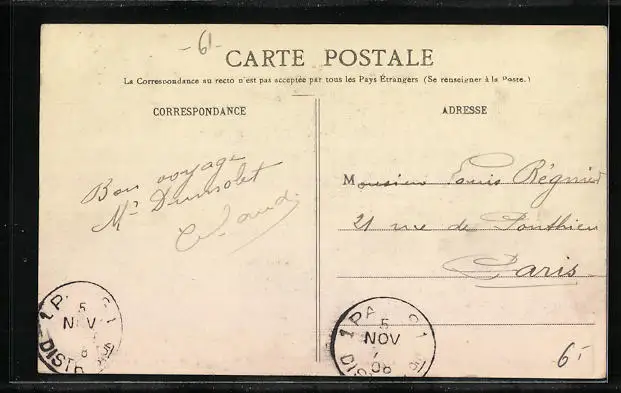 - 61 -
CARTE POSTALE
La Correspondance au recto n'est pas acceptée par tous les Pays Étrangers (Se renseigner à la Poste.)
CORRESPONDANCE
Bon voyage
Mr Dumolet
ADRESSE
Monsieur Louis Régnier
21 rue de Ponthieu
Paris
5
NOV
DISTR
1 PA
5
NOV
08
6-